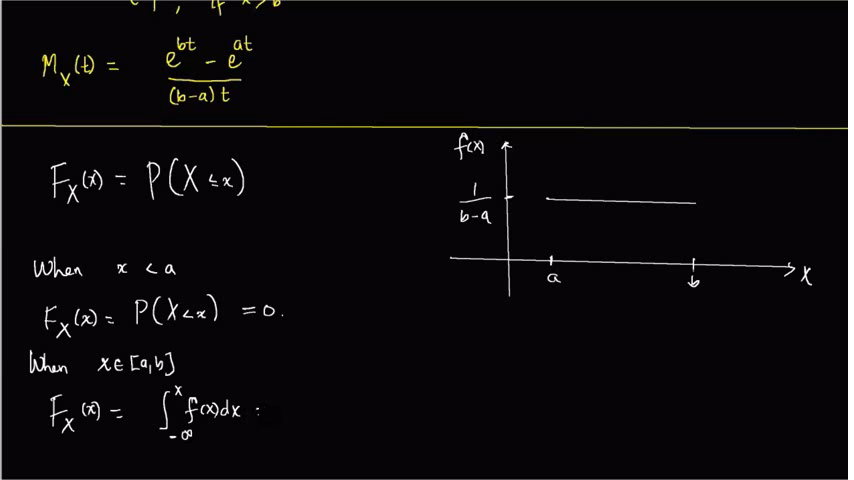 , if x > b
M_X(t) = (e^{bt} - e^{at}) / ((b-a)t)
F_X(x) = P(X ≤ x)
When x < a
F_X(x) = P(X < x) = 0.
When x ∈ [a,b]
F_X(x) = ∫_{-∞}^{x} f(x)dx =
f(x)
1/(b-a)
a
b
X